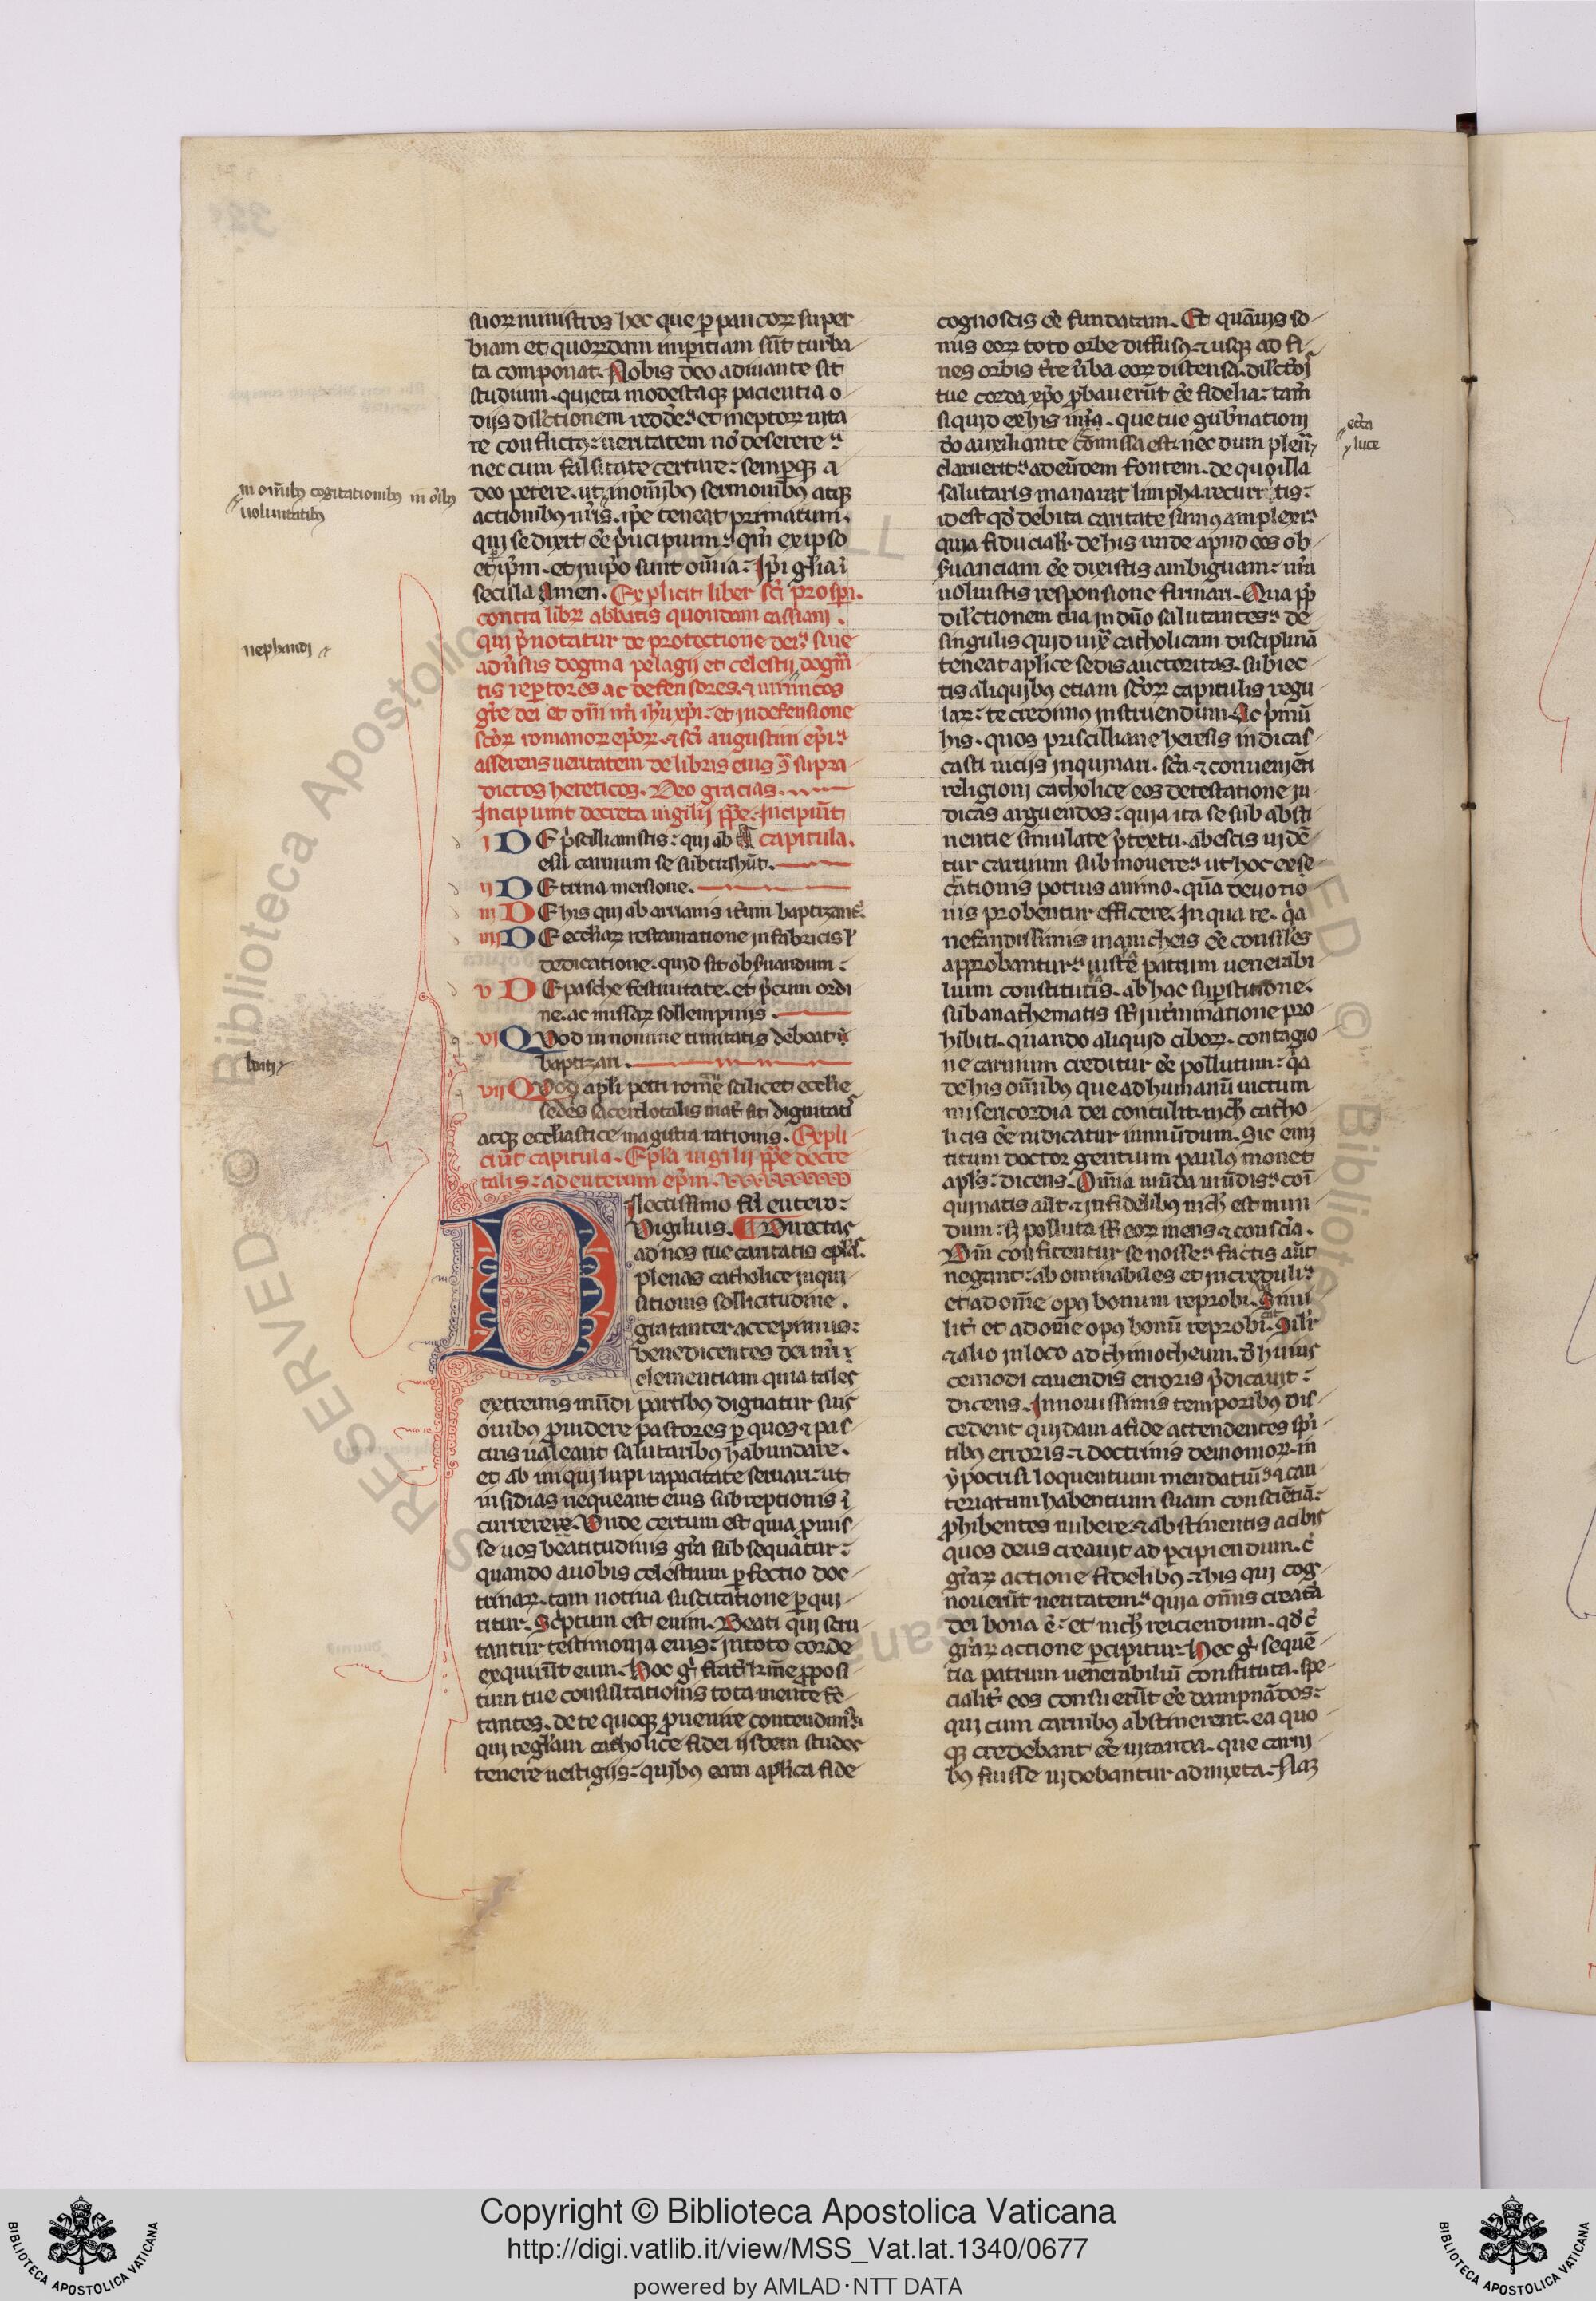 suoꝝ ministros hec que ꝑ paucoꝝ super
biam et quoꝝdam impitiam sūt turba
ta componat. Nobis deo adiuuante sit
studium. quieta modestaqꝫ pacientia o
diis dilectionem redde͛. et ineptoꝝ uita
re conflictꝰ: ueritatem nō deserere.
nec cum falsitate certare: sempqꝫ a
deo petere. ut in omībus sermonibus atqꝫ
actionibꝰ nr̄is. ip̄e teneat primatum.
qui se dixit eē p̄ncipium: qm̄ ex ipso
et ꝑ ip̄m. et in ip̄o sunt om̄ia: Ip̄i gl̄ia ī
secula Amen. Explicit liber sc̄i prosp̄i.
contra librꝫ abbatis quondam cassiani.
qui p̄notatur de protectione dei: siue
adūsus dogma pelagii et celestij dogm̄
tis rep̄tores ac defensores. ⁊ inimicos
gr̄e dei et dn̄i nr̄i ih̄u xp̄i: et in defensione
sc̄oꝝ romanoꝝ ep̄oꝝ. ⁊ sc̄i augustini ep̄i:
asserens ueritatem de libris eius ꝯ̄ supra
dictos hereticos. Deo gracias.
Incipiunt decreta uigilij pp̄e. Incipiūt
I DE p̄scillianistis: qui ab capitula.
esu carnium se subtrahūt.
II DE trina mersione.
III DE his qui ab arrianis itum baptizant͛.
IIII DE eccl̄iaꝝ restauratione in fabricis ł
dedicatione. quid sit obseruandum:
V DE pasche festiuitate. et p̄cum ordi
ne. ac missaꝝ sollempniis.
VI QVod in nomine trinitatis debeat
baptizari.
VII QVod apl̄i petri rome scilicet eccl̄ie
sedes sacerdotalis mat͛ sit dignitatis
atqꝫ eccl̄iastice magistra rationis. Expli
ciūt capitula. Epl̄a uigilij pp̄e decre
talis: ad euterum ep̄m.
Dilectissimo fr̄i eutero:
Vigilius. Directas
ad nos tue caritatis epl̄as.
plenas catholice inqui
sitionis sollicitudine.
gratanter accepimus:
benedicentes dei nr̄i
clementiam quia tales
extremis mūdi partibꝰ dignatur suis
ouibꝰ prouidere pastores ꝑ quos ⁊ pas
cuis ualeant salutaribꝰ habundare.
et ab iniqui lupi rapacitate seruari: ut
insidias nequeant eius subreptionis ī
currerere. Vnde certum est quia promis
se uos beatitudinis gr̄a subsequatur:
quando a uobis celestium ꝑfectio doc
trinaꝝ. tam notiua suscitatione ꝑqui
ritur. Scptum est enim. Beati qui scru
tantur testimonia eius: in toto corde
exquirūt eum. Hoc g̊ frat͛ne proposi
tum tue consultationis tota mente fe
tantes. de te quoqꝫ prouenire contendimꝰ.
qui regl̄am catholice fidei iisdem studes
tenere uestigiis: quibꝰ eam apl̄ica fide
cognoscis eē fundatam. Et quāuis so
nus eoꝝ toto orbe diffusꝰ ⁊ usqꝫ ad fi
nes orbis tr̄e ūba eoꝝ distensa. dilectōis
tue corda xp̄o probauerūt eē fidelia: tam̄
si quid ex his. que tue gubnationi
do auxiliante cōmissa est. nec dum plen
claruerit: ad eūdem fontem. de quo illa
salutaris manarat limpha. recurrētis:
id est qd̄ debita caritate sumꝰ amplexi:
quia fiducialr̄. de his unde apud eos ob
seruanciam eē dixistis ambiguam: nr̄a
uoluistis responsione firmari. Qua ꝓp̄
dilectionem tua in dn̄o salutantes: de
singulis quid iuxͣ catholicam disciplinā
teneat apl̄ice sedis auctoritas. subiec
tis aliquibꝰ etiam sc̄oꝝ capitulis regu
laꝝ: te credimꝰ instruendum. Ac p̄mū
his. quos priscilliane heresis indicas
casti uiciis inquinari. sc̄a ⁊ conueniēti
religioni catholice eos detestatione iu
dicas arguendos: quia ita se sub absti
nentie simulate p̄textu. ab escis uidē
tur carnium submouere: ut hoc exse
crationis potius animo. qͣm deuotio
nis probentur efficere. In qua re. qͥa
nefandissimis manicheis eē consiles
approbantur: iuste patrum uenerabi
lium constitutis. ab hac suꝑstitione.
sub anathematis st int͛minatione pro
hibiti. quando aliquid ciboꝝ. contagio
ne carnium creditur eē pollutum: qͥa
de his om̄ibꝰ que ad humanū uictum
misericordia dei contulit. nich̄ catho
licis eē iudicatur inmūdum. Sic enī
titum doctor gentium paulꝰ monet
apl̄s: dicens. Om̄ia mūda mūdis: coī
quinatis aūt ⁊ infidelibꝰ nich̄ est mun
dum: s; polluta st eoꝝ mens ⁊ conscīa.
Dm̄ confitentur se nosse: factis aūt
negant: abominabiles et increduli:
et ad om̄e opꝰ bonum reprobi. Simi
lit͛ et ad om̄e opꝰ bonū reprobi. Silr̄
⁊ alio in loco ad thimotheum. d̄ huius
cemodi cauendis erroris p̄dicauit:
dicens. In nouissimis temporibꝰ dis
cedent quidam a fide attendentes sp̄i
tibꝰ erroris ⁊ doctrinis demonioꝝ. in
ypocrisi loquentium mendatiū: ⁊ cau
teriatam habentium suam consciētiā:
prohibentes nubere. ⁊ abstinentis a cibis
quos deus creauit ad ꝑcipiendum. c̄
gr̄aꝝ actione fidelibꝰ ⁊ his qui cog
nouerūt ueritatem: quia om̄is creatͣa
dei bona ē: et nich̄ reiciendum. qd̄ c̄
gr̄aꝝ actione ꝑcipitur. Hec g̊ sequē
tia patrum uenerabiliū constituta. spe
cialit͛ eos consuerūt eē dampnādos:
qui cum carnibꝰ abstinerent. ea quo
qꝫ credebant eē uitanda. que carni
bꝰ fuisse uidebantur admixta. Naꝫ
in om̄ibꝰ cogitationibꝰ in oībꝰ
uoluntatibꝰ
nephandi
beati
luce
Copyright © Biblioteca Apostolica Vaticana
http://digi.vatlib.it/view/MSS_Vat.lat.1340/0677
powered by AMLAD·NTT DATA
BIBLIOTECA APOSTOLICA VATICANA
BIBLIOTECA APOSTOLICA VATICANA